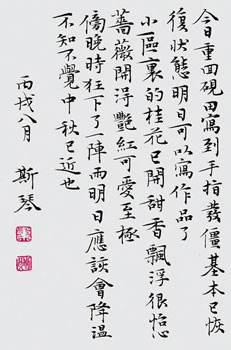 今日重面硯田寫到手指發僵基本已恢
復狀態明日可以寫作品了
小區裏的桂花已開甜香飄浮很怡心
薔薇開得艷紅可愛至極
傍晚時狂下了一陣雨明日應該會降溫
不知不覺中秋已近也
丙戌八月
斯琴